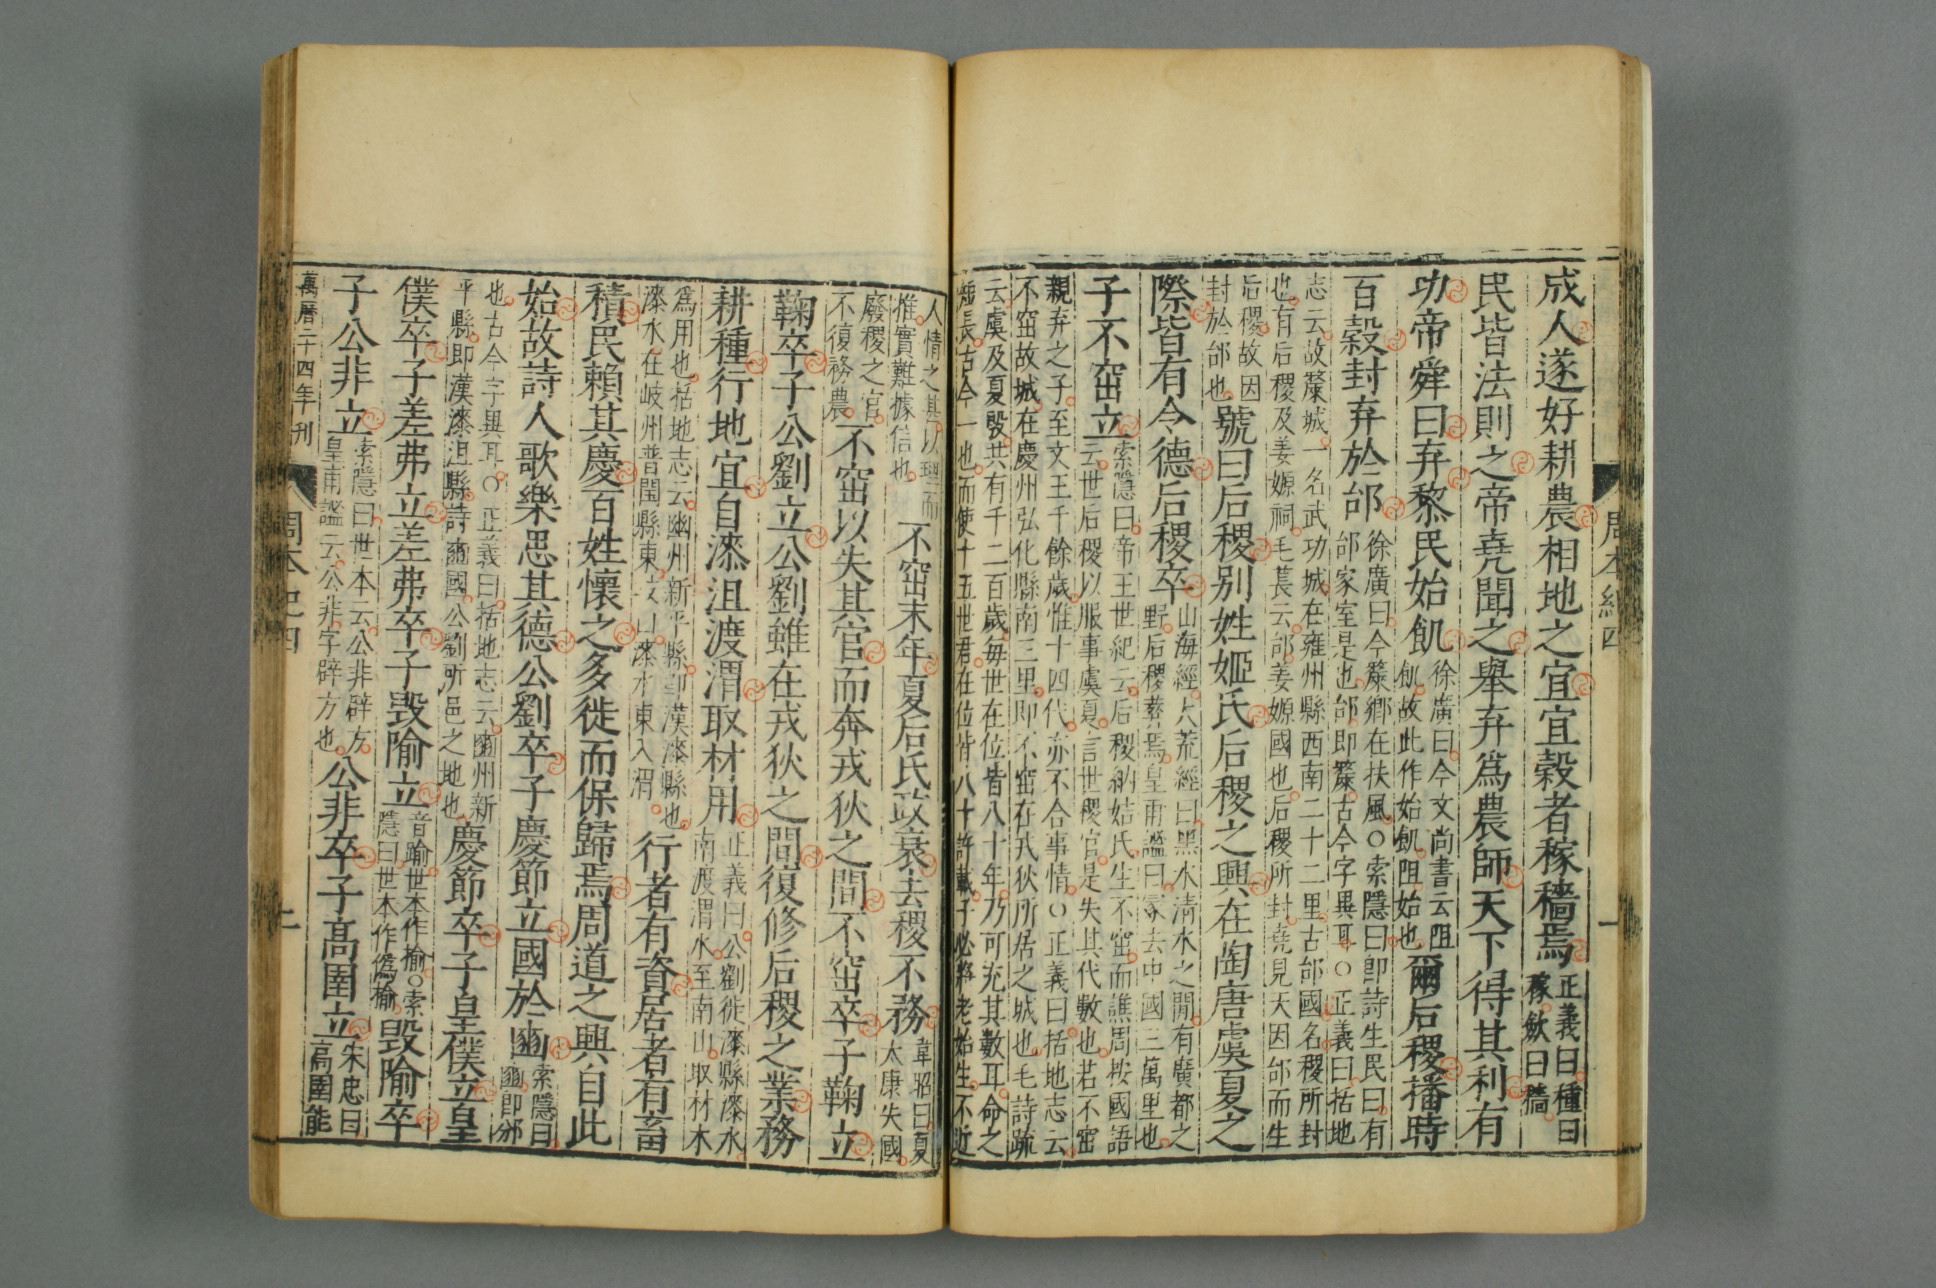 成人遂好耕農相地之宜宜穀者稼穡焉正義曰種曰稼歛曰穡
民皆法則之帝堯聞之舉弃爲農師天下得其利有
功帝舜曰弃黎民始飢徐廣曰今文尚書云阻飢故此作始飢阻始也爾后稷播時
百穀封弃於邰徐廣曰今斄鄉在扶風○索隱曰即詩生民曰有邰家室是也邰即斄古今字異耳○正義曰括地
志云故斄城一名武功城在雍州縣西南二十二里古邰國名稷所封也有后稷及姜嫄祠毛萇云邰姜嫄國也后稷所封堯見天因邰而生
后稷故因封於邰也號曰后稷別姓姬氏后稷之興在陶唐虞夏之
際皆有令德后稷卒山海經大荒經曰黑水清水之間有廣都之野后稷葬焉皇甫謐曰冢去中國三萬里也
子不窋立索隱曰帝王世紀云后稷納姞氏生不窋而譙周按國語云世后稷以服事虞夏言世稷官是失其代數也若不窋
親弃之子至文王千餘歲惟十四代亦不合事情○正義曰括地志云不窋故城在慶州弘化縣南三里即不窋在戎狄所居之城也毛詩疏
云虞及夏殷共有千二百歲每世在位皆八十年乃可充其數耳命之短長古今一也而使十五世君在位皆八十許載子必將老始生不近
人情之甚以理而惟實難據信也不窋末年夏后氏政衰去稷不務韋昭曰夏太康失國
廢稷之官不復務農不窋以失其官而奔戎狄之間不窋卒子鞠立
鞠卒子公劉立公劉雖在戎狄之間復修后稷之業務
耕種行地宜自漆沮渡渭取材用正義曰公劉徙漆縣漆水南渡渭水至南山取材木
爲用也括地志云豳州新平縣即漢漆縣也漆水在岐州普閏縣東漆水東入渭行者有資居者有畜
積民賴其慶百姓懷之多徙而保歸焉周道之興自此
始故詩人歌樂思其德公劉卒子慶節立國於豳索隱曰豳即邠
也古今字異耳○正義曰括地志云豳州新平縣即漢漆沮縣詩豳國公劉所邑之地也慶節卒子皇僕立皇
僕卒子差弗立差弗卒子毀隃立音踰世本作揄○索隱曰世本作僞榆毀隃卒
子公非立索隱曰世本云公非辟方皇甫謐云公非字辟方也公非卒子高圉立宋忠曰高圉能
萬曆二十四年刊
周本紀四
一